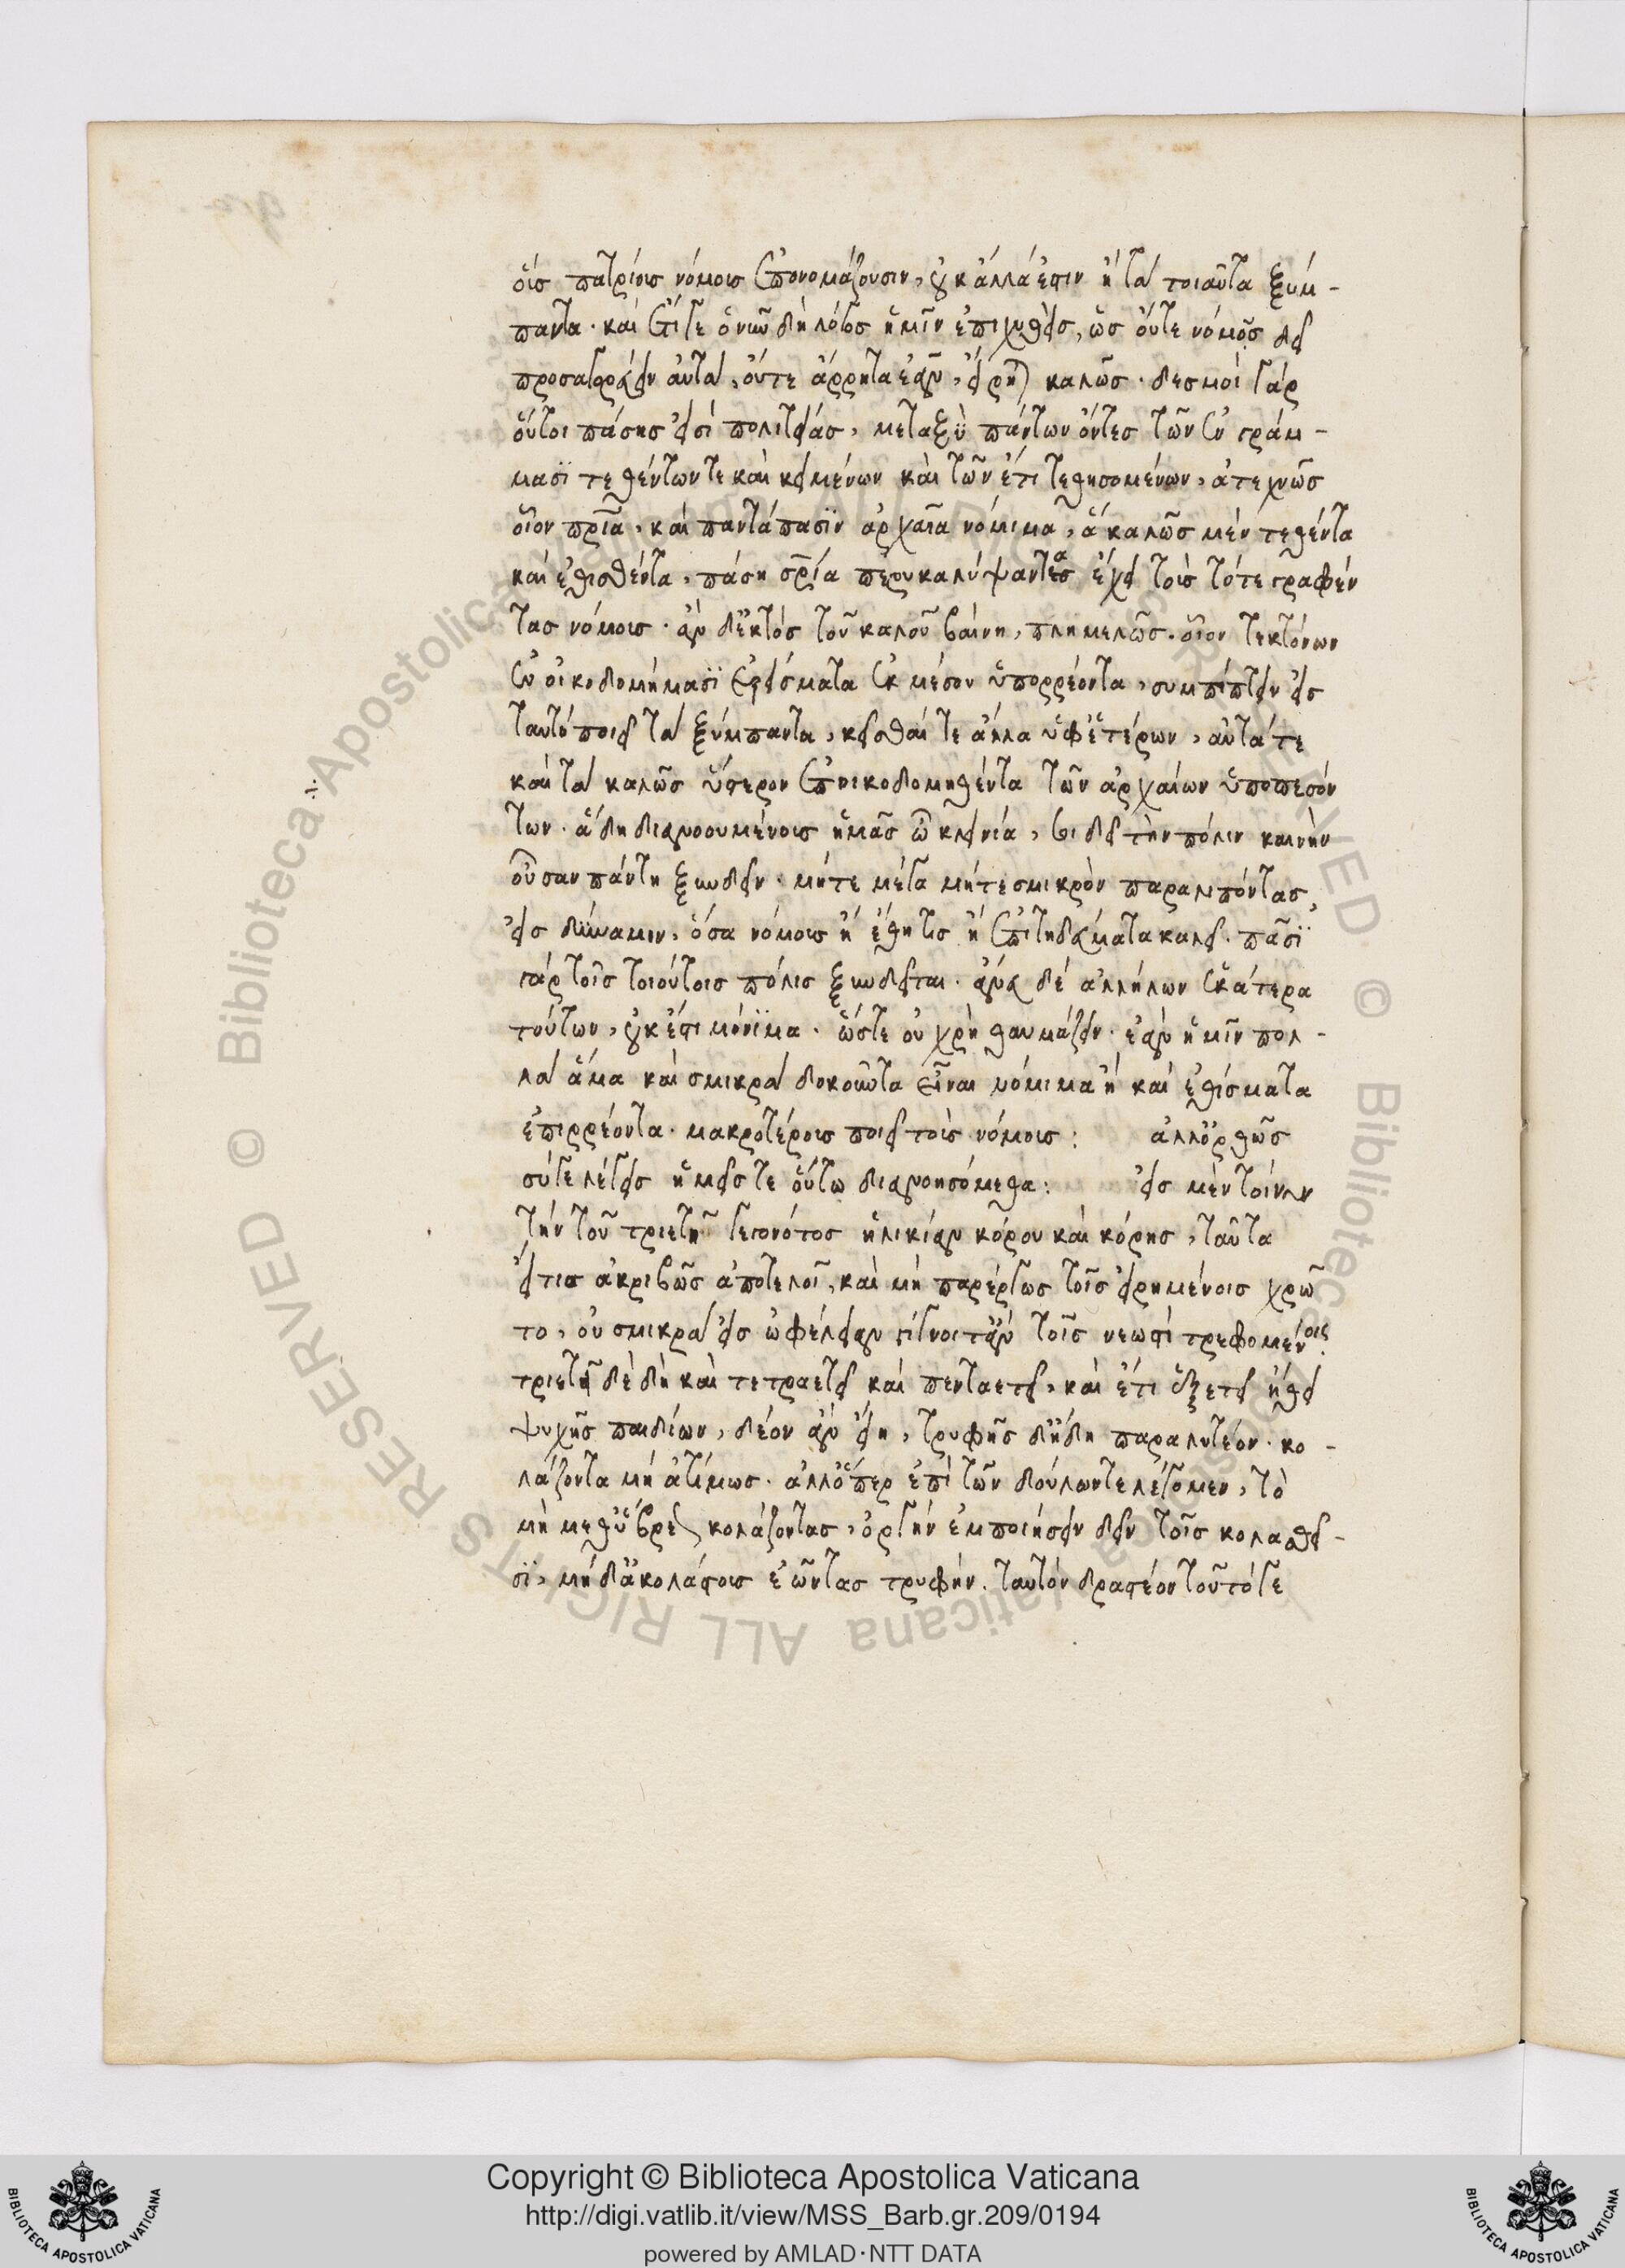 οἵς πατρίοις νόμοις ἐπονομάζουσιν, οὐκ ἄλλα ἐστιν ἢ τὰ τοιαῦτα ξύμ-
παντα. καὶ ἔτι γε ὁ νῦν δὴ λόγος ἡμῖν ἐπιχυθεὶς, ὡς οὔτε νόμους δεῖ
προσαγορεύειν αὐτὰ, οὔτε ἄρρητα ἐᾶν, εἴρηται καλῶς. δεσμοὶ γὰρ
οὗτοι πάσης εἰσὶ πολιτείας, μεταξὺ πάντων ὄντες τῶν ἐν γράμ-
μασϊ τεθέντων τε καὶ κειμένων καὶ τῶν ἔτι τεθησομένων, ἀτεχνῶς
οἷον πάτρια, καὶ παντάπασϊν ἀρχαῖα νόμιμα, ἃ καλῶς μὲν τεθέντα
καὶ ἐθισθέντα, πάση σωτηρία περικαλύψαντα ἔχει τοὺς τότε γραφέν
τας νόμους. ἂν δ' ἐκτὸς τοῦ καλοῦ βαίνη, πλημελῶς. οἷον τεκτόνων
ἐν οἰκοδομήμασϊ ἐρείσματα ἐκ μέσου ὑπορρέοντα, συμπίπτειν εἰς
ταυτὸ ποιεῖ τὰ ξύμπαντα, κεῖσθαί τε ἄλλα ὑφ' ἑτέρων, αὐτά τε
καὶ τὰ καλῶς ὕστερον ἐποικοδομηθέντα τῶν ἀρχαίων ὑποπεσόν
των. ἃ δὴ διανοουμένους ἡμᾶς ὦ κλεινία, σοι δεῖ τὴν πόλιν καινὴν
οὖσαν πάντη ξυνδεῖν. μήτε μέγα μήτε σμικρὸν παραλιπόντας,
εἰς δύναμιν, ὅσα νόμους ἢ ἔθη τις ἢ ἐπιτηδεύματα καλεῖ. πᾶσϊ
γὰρ τοῖς τοιούτοις πόλις ξυνδεῖται. ἄνευ δὲ ἀλλήλων ἑκάτερα
τούτων, οὐκ ἔστι μόνϊμα. ὥστε οὐ χρὴ θαυμάζειν. ἐὰν ἡμῖν πολ-
λὰ ἅμα καὶ σμικρὰ δοκοῦντα εἶναι νόμιμα ἢ καὶ ἐθίσματα
ἐπιρρέοντα. μακροτέρους ποιεῖ τοὺς νόμους: ἀλλ' ὀρθῶς
σύ γε λέγεις ἡμεῖς τε οὕτω διανοησόμεθα: εἰς μὲν τοίνυν
τὴν τοῦ τριετῆ γεγονότος ἡλικίαν κόρου καὶ κόρης, ταῦτα
εἴ τις ἀκριβῶς ἀποτελοῖ, καὶ μὴ παρέργως τοῖς εἰρημένοις χρῶ
το, οὐ σμικρὰ εἰς ὠφέλειαν γίγνοιτ' ἂν τοῖς νεωστὶ τρεφομένοις.
τριετῆ δὲ δὴ καὶ τετραετεῖ καὶ πενταετεῖ, καὶ ἔτι ἑξετεῖ ἤθει
ψυχῆς παιδίων, δέον ἂν εἴη, τρυφῆς δ' ἤδη παραλυτέον. κο-
λάζοντα μὴ ἀτίμως. ἀλλ' ὅπερ ἐπὶ τῶν δούλων τε λέγομεν, τὸ
μὴ μεθ' ὕβρεως κολάζοντας, ὀργὴν ἐμποιήσειν δεῖν τοῖς κολασθεῖ-
σϊ, μήδ' ἀκολάστους ἐῶντας τρυφὴν. ταυτὸν δραστέον τοῦτό γε
© Biblioteca Apostolica Vaticana ALL RIGHTS RESERVED © Biblioteca Apostolica Vaticana ALL RIGHTS RESERVED
BIBLIOTECA APOSTOLICA VATICANA
Copyright © Biblioteca Apostolica Vaticana
http://digi.vatlib.it/view/MSS_Barb.gr.209/0194
powered by AMLAD·NTT DATA
BIBLIOTECA APOSTOLICA VATICANA